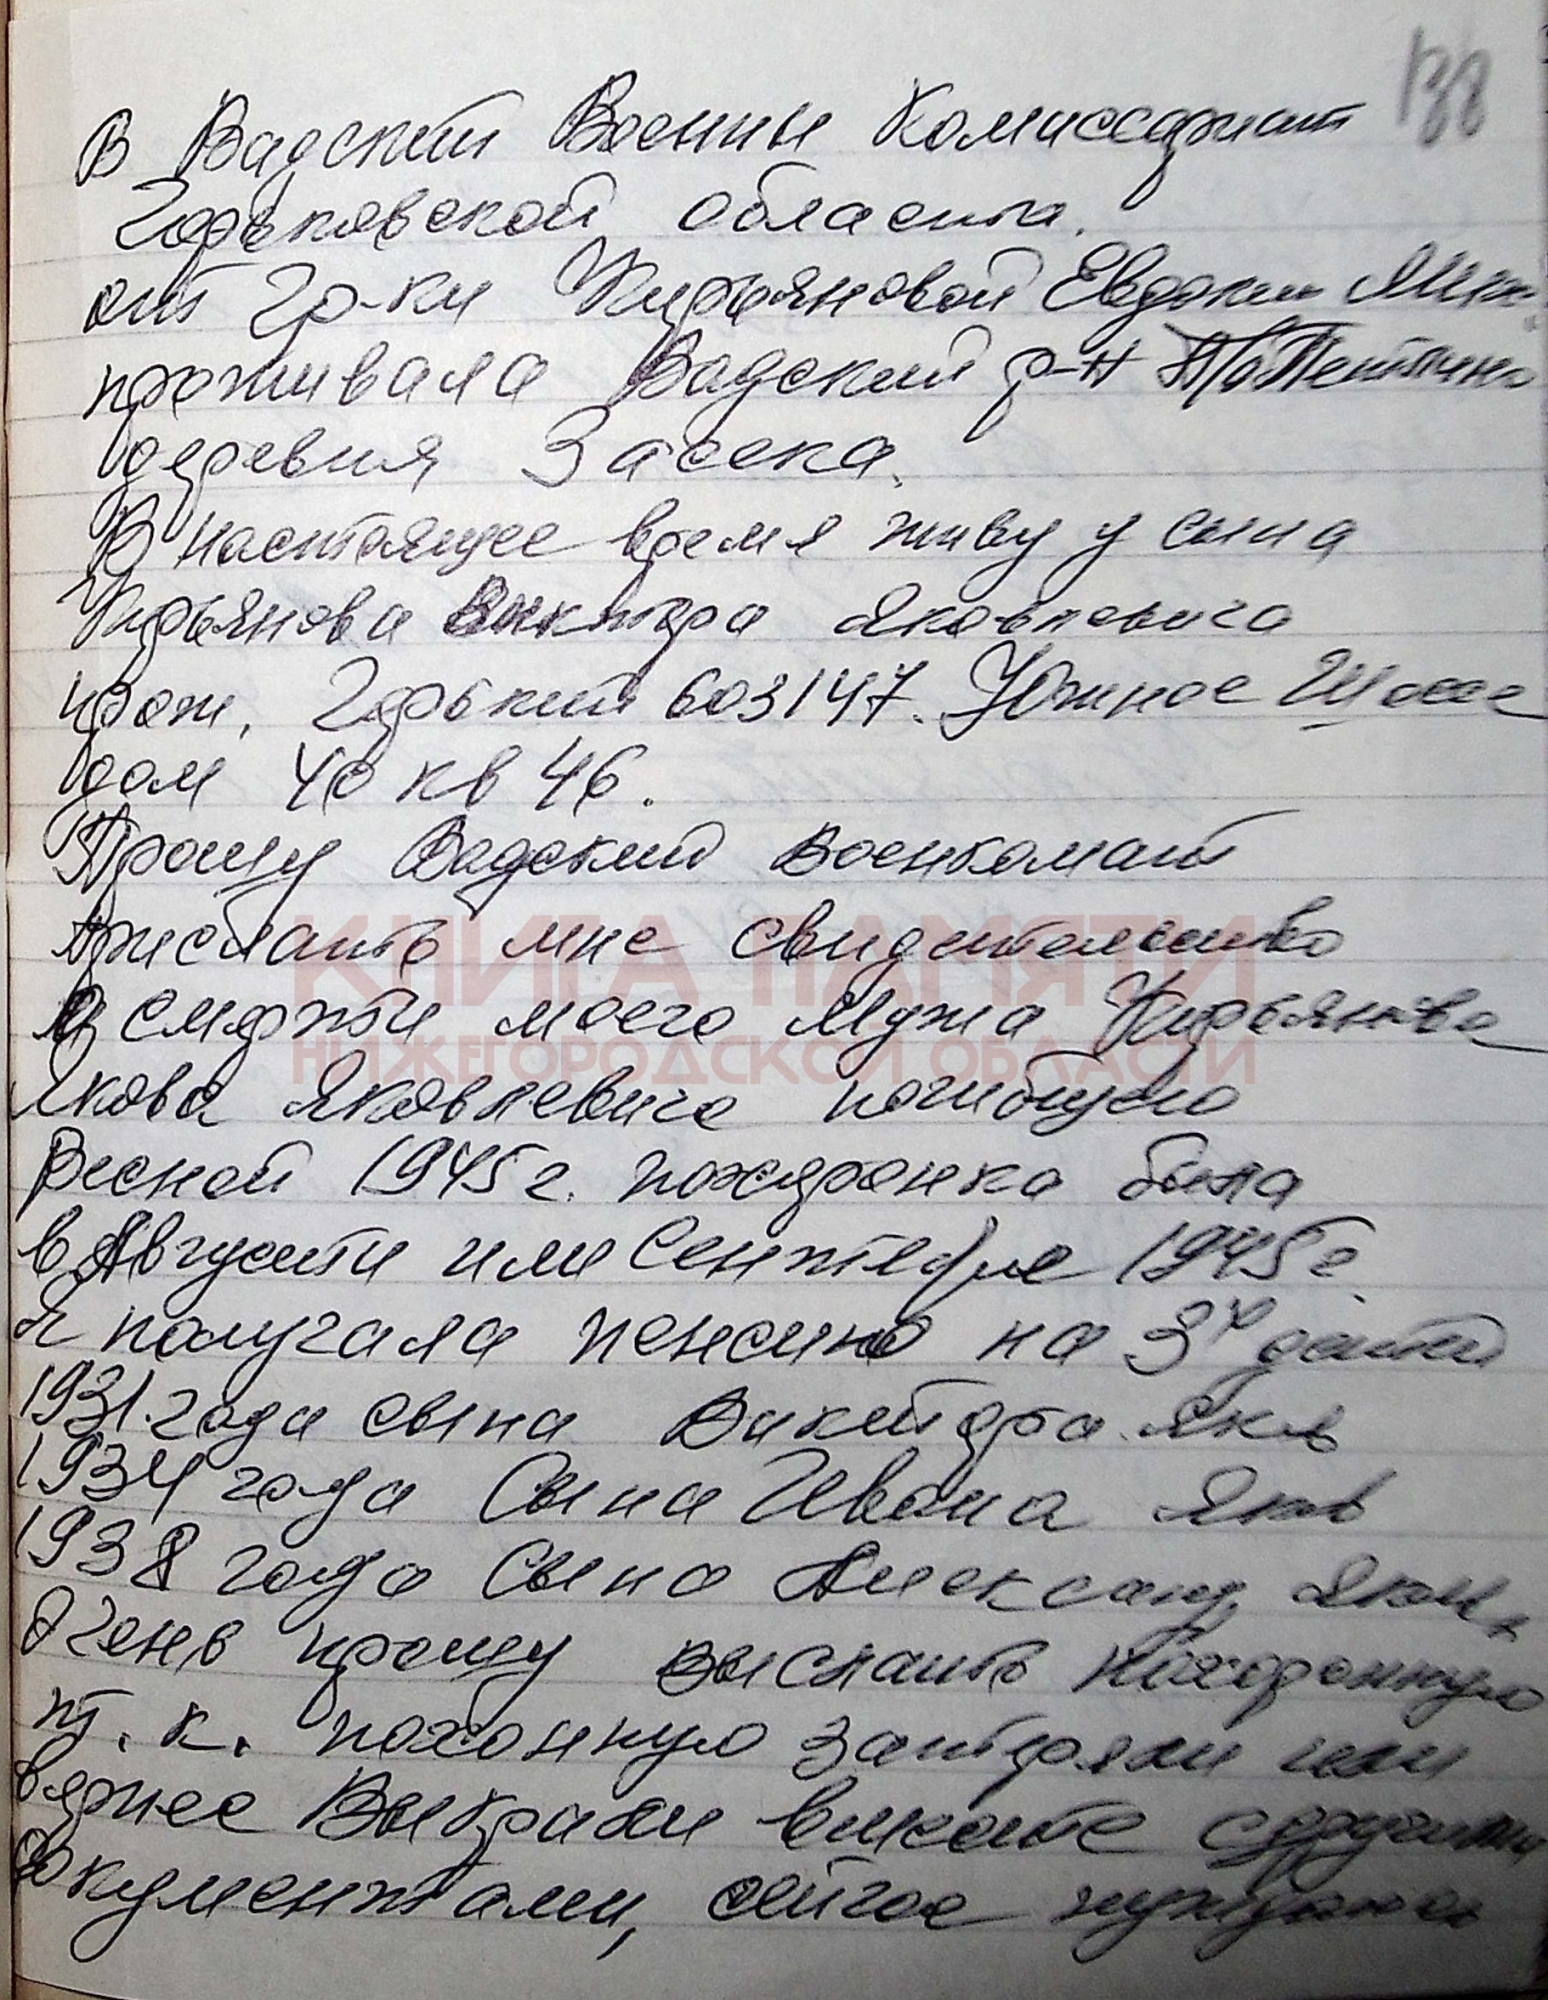 138
В Вадский Военны Комиссариат
Горьковской области.
от гр-ки Кирьяновой Евдокии
проживала Вадский р-н
деревня Засека.
В настоящее время живу у сына
Кирьянова Виктора Яковлевича
прож. Горький 603147. Южное Шоссе
дом 40 кв 46.
Прошу Вадский Военкомат
прислать мне свидетельство
о смерти моего мужа Кирьянова
Якова Яковлевича погибшего
Весной 1945г. похоронка была
в Августе или Сентябре 1945г.
Я получала пенсию на 3х детей
1931. года сына Виктора Яковл
1934 года Сына Ивана Яков
1938 года Сына Александ.
Очень прошу выслать похоронную
т. к. похонную затеряли или
вернее Выкрали вместе сдругими
документами, сейчас нуждаюсь
КНИГА ПАМЯТИ
НИЖЕГОРОДСКОЙ ОБЛАСТИ